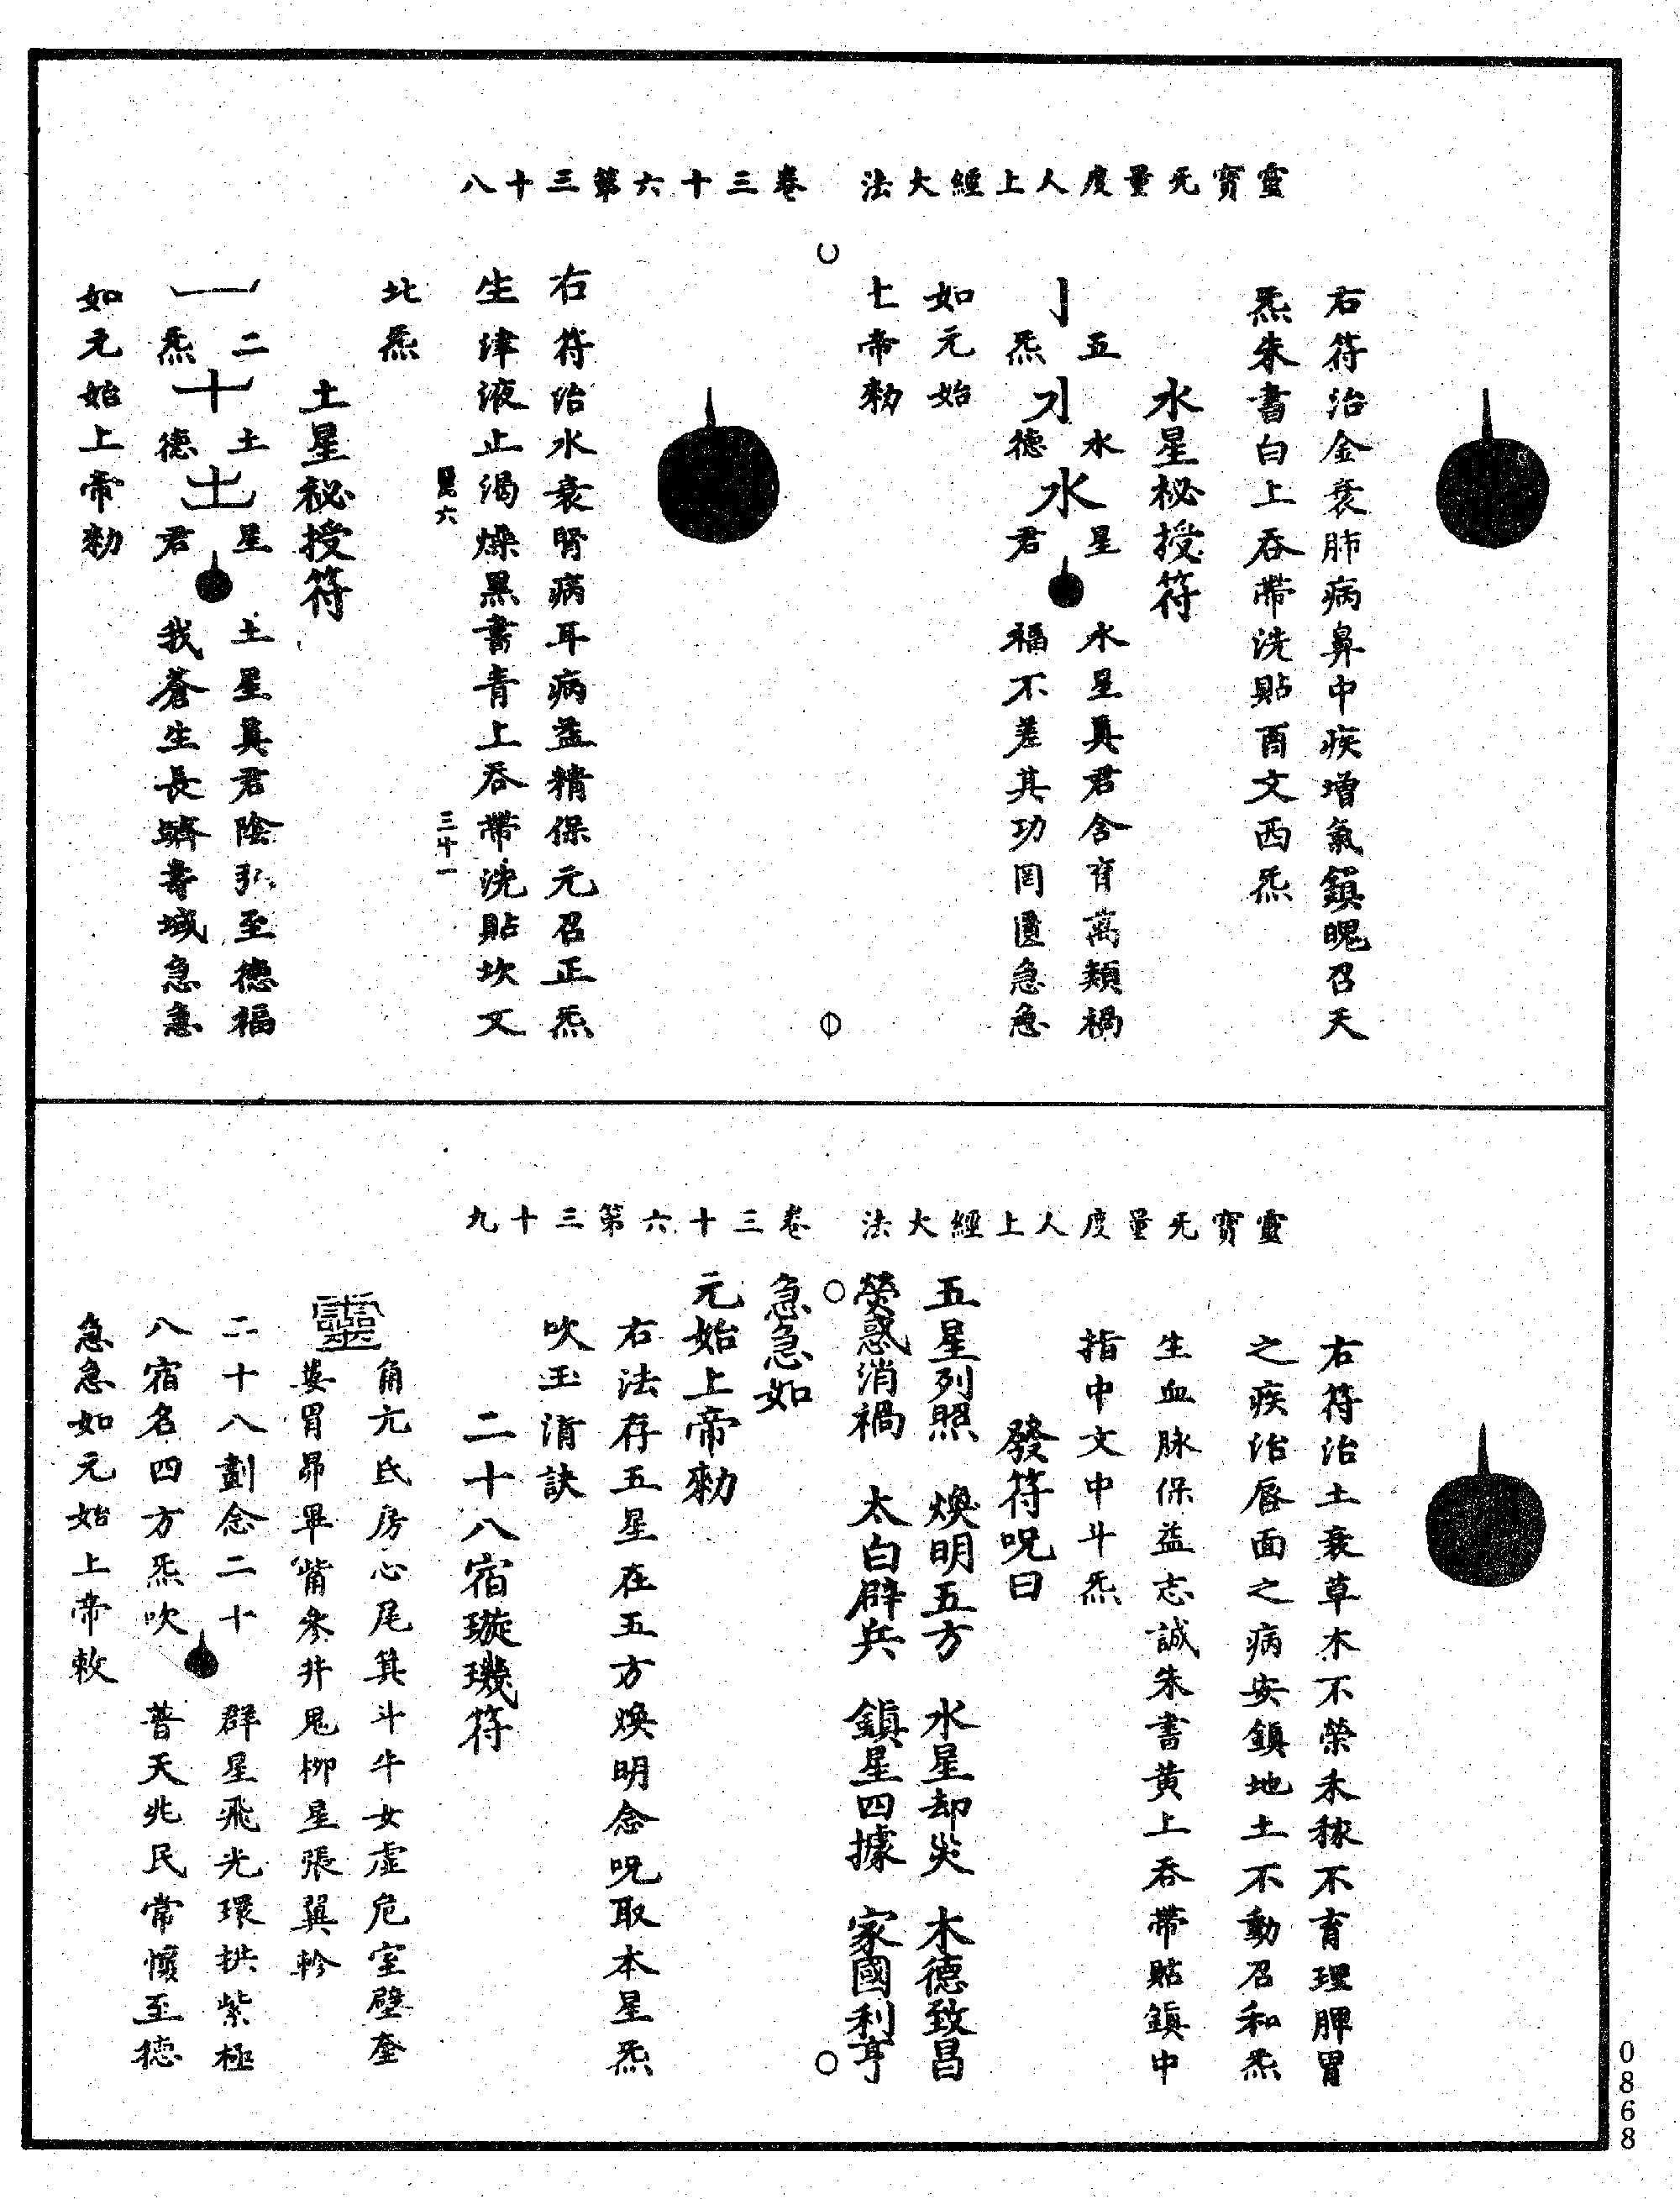 靈寶无量度人上經大法　卷三十六第三十八
右符治金衰肺病鼻中疾増氣鎮魄召天
炁朱書白上吞帶洗貼酉文西炁
水星秘授符
五水星
炁德君
水
水星真君含育萬類禍
福不差其功罔匱急急
如元始
上帝勑
右符治水衰腎病耳病益精保元召正炁
生津液止渴燥黑書青上吞帶洗貼坎文
六　三十一
北炁
土星祕授符
二土星
炁德君
一十土
土星真君陰弘至德福
我蒼生長躋壽域急急
如元始上帝勑
靈寶无量度人上經大法　卷三十六第三十九
右符治土衰草木不榮禾稼不育理脾胃
之疾治唇面之病安鎮地土不動召和炁
生血脉保益志誠朱書黄上吞帶貼鎮中
指中文中斗炁
發符呪曰
五星列照　煥明五方　水星却災　木德致昌
熒惑消禍　太白辟兵　鎮星四據　家國利亨
急急如
元始上帝勑
右法存五星在五方煥明念呪取本星炁
吹玉清訣
二十八宿璇璣符
靈
角亢氐房心尾箕斗牛女虚危室壁奎
婁胃昴畢觜參井鬼柳星張翼軫
二十八劃念二十
八宿名四方炁吹
群星飛光環拱紫極
普天兆民常懷至德
急急如元始上帝敕
0868